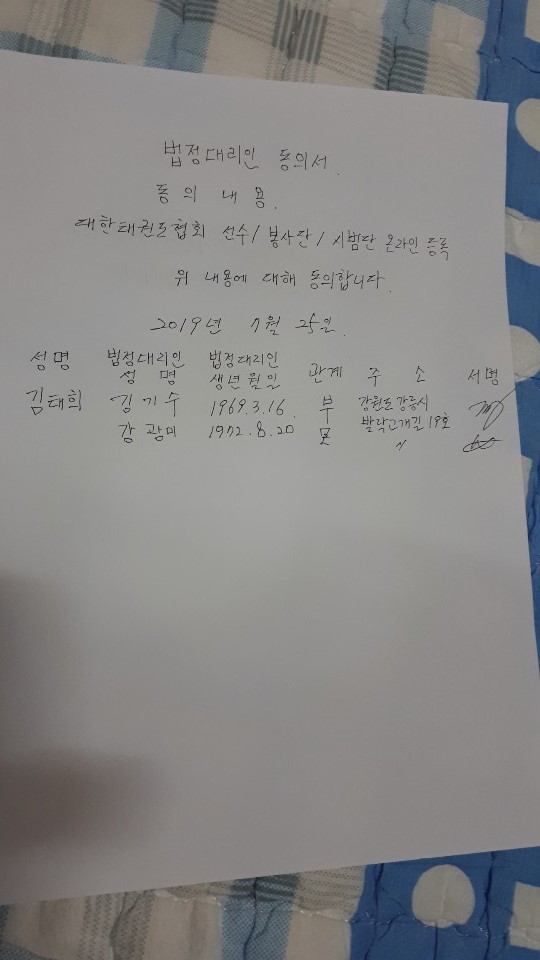 법정대리인 동의서.
동의 내용.
대한태권도협회 선수/봉사단/시범단 온라인 등록
위 내용에 대해 동의합니다.
2019년 7월 25일.
성명 법정대리인 성명 법정대리인 생년월일 관계 주소 서명
김태희 김기수 1969.3.16. 부 강원도 강릉시 발락고개길 19호
강광미 1972.8.20 모 〃